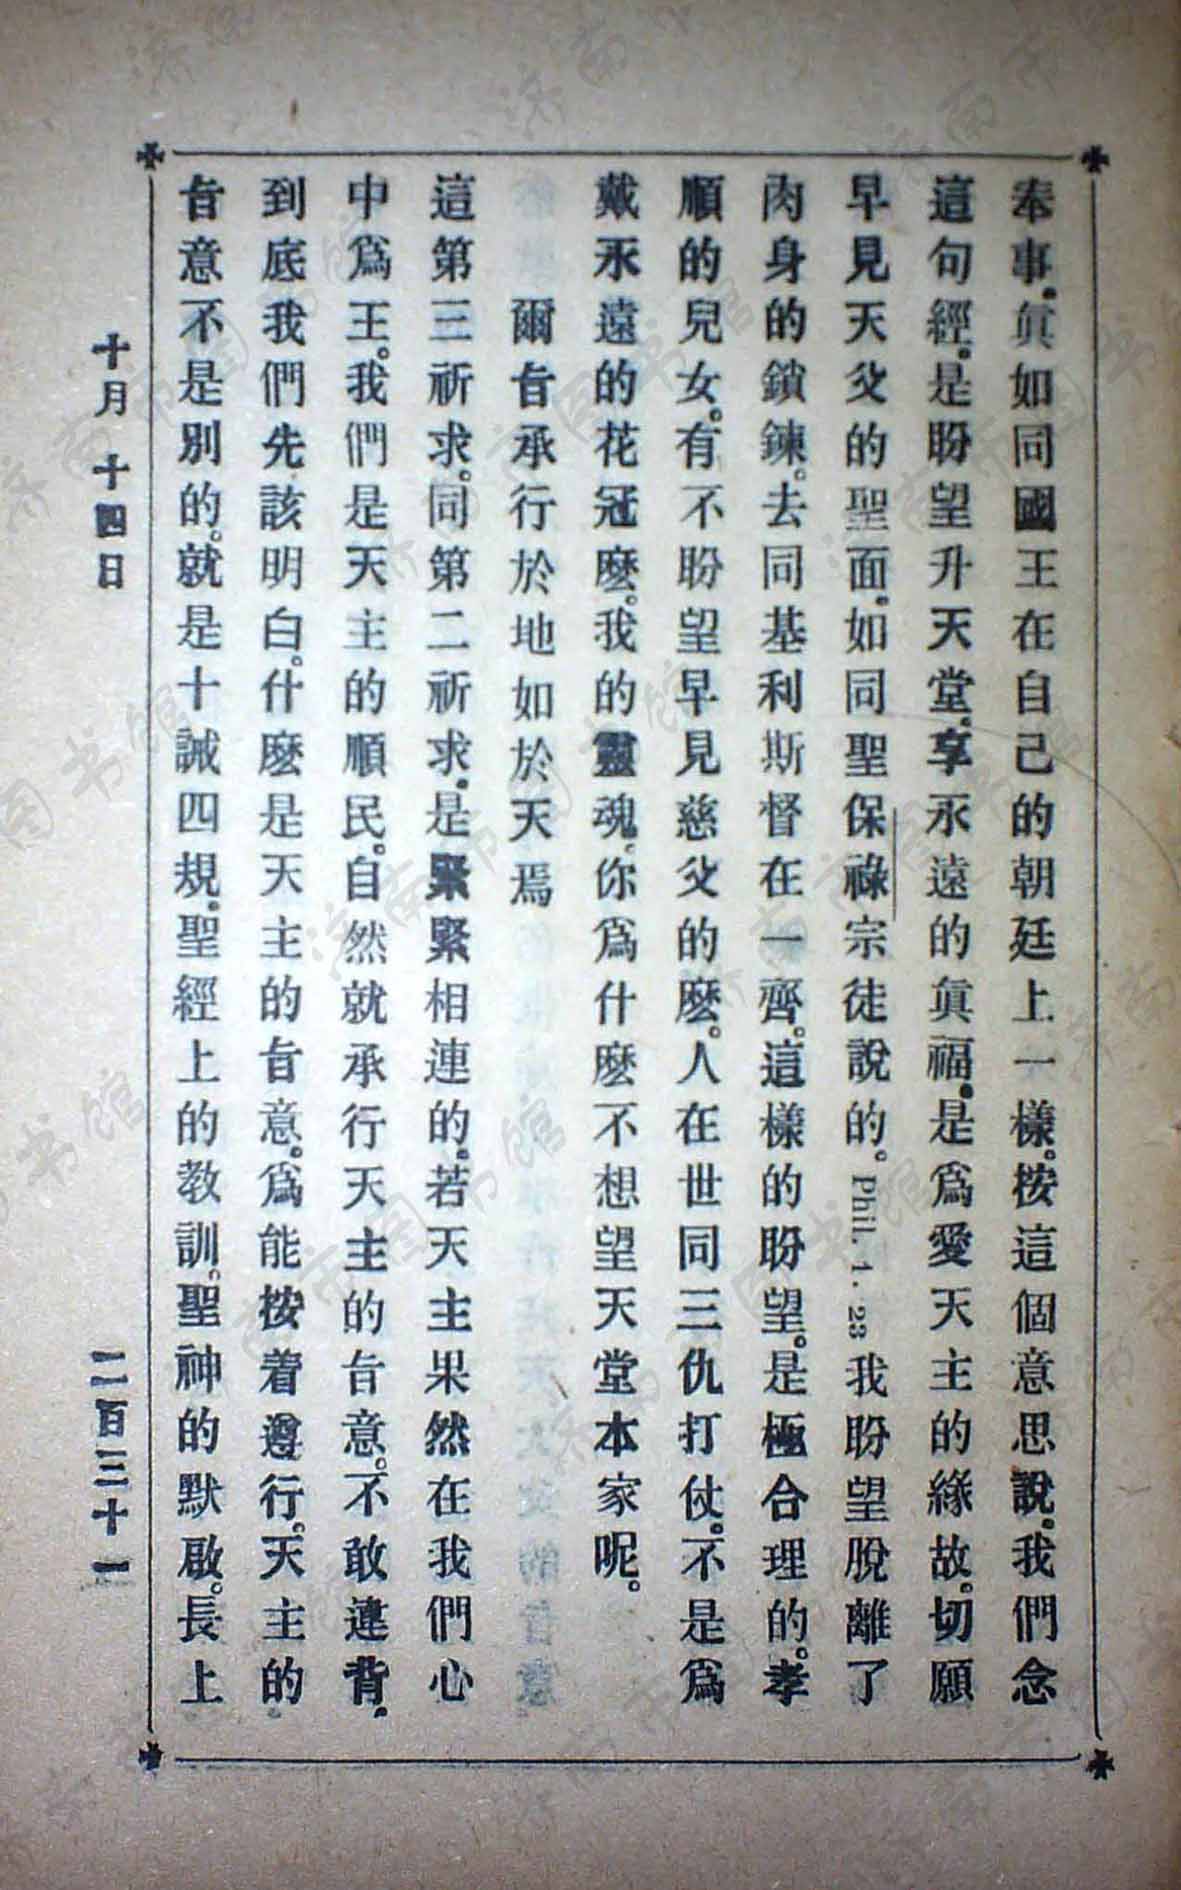 奉事。眞如同國王在自己的朝廷上一樣。按這個意思說。我們念
這句經。是盼望升天堂。享永遠的眞福。是爲愛天主的緣故。切願
早見天父的聖面。如同聖保祿宗徒說的。Phil. 1. 23 我盼望脫離了
肉身的鎖鍊。去同基利斯督在一齊。這樣的盼望。是極合理的。孝
順的兒女。有不盼望早見慈父的麽。人在世同三仇打仗。不是爲
戴永遠的花冠麽。我的靈魂。你爲什麽不想望天堂本家呢。
爾旨承行於地如於天焉
這第三祈求。同第二祈求。是緊緊相連的。若天主果然在我們心
中爲王。我們是天主的順民。自然就承行天主的旨意。不敢違背。
到底我們先該明白。什麽是天主的旨意。爲能按着遵行。天主的
旨意不是別的。就是十誡四規。聖經上的教訓。聖神的默啟。長上
十月十四日
二百三十一
济南市图书馆